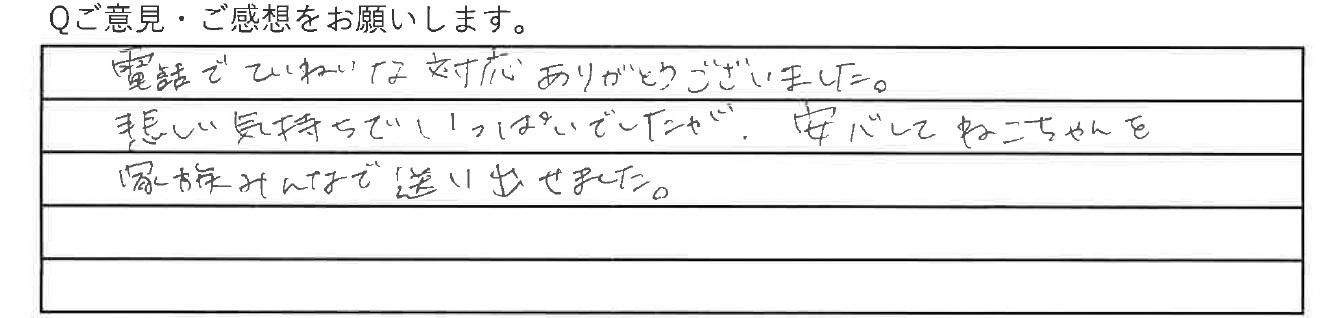 Qご意見・ご感想をお願いします。
電話でていねいな対応ありがとうございました。
悲しい気持ちでいっぱいでしたが、安心してねこちゃんを
家族みんなで送り出せました。